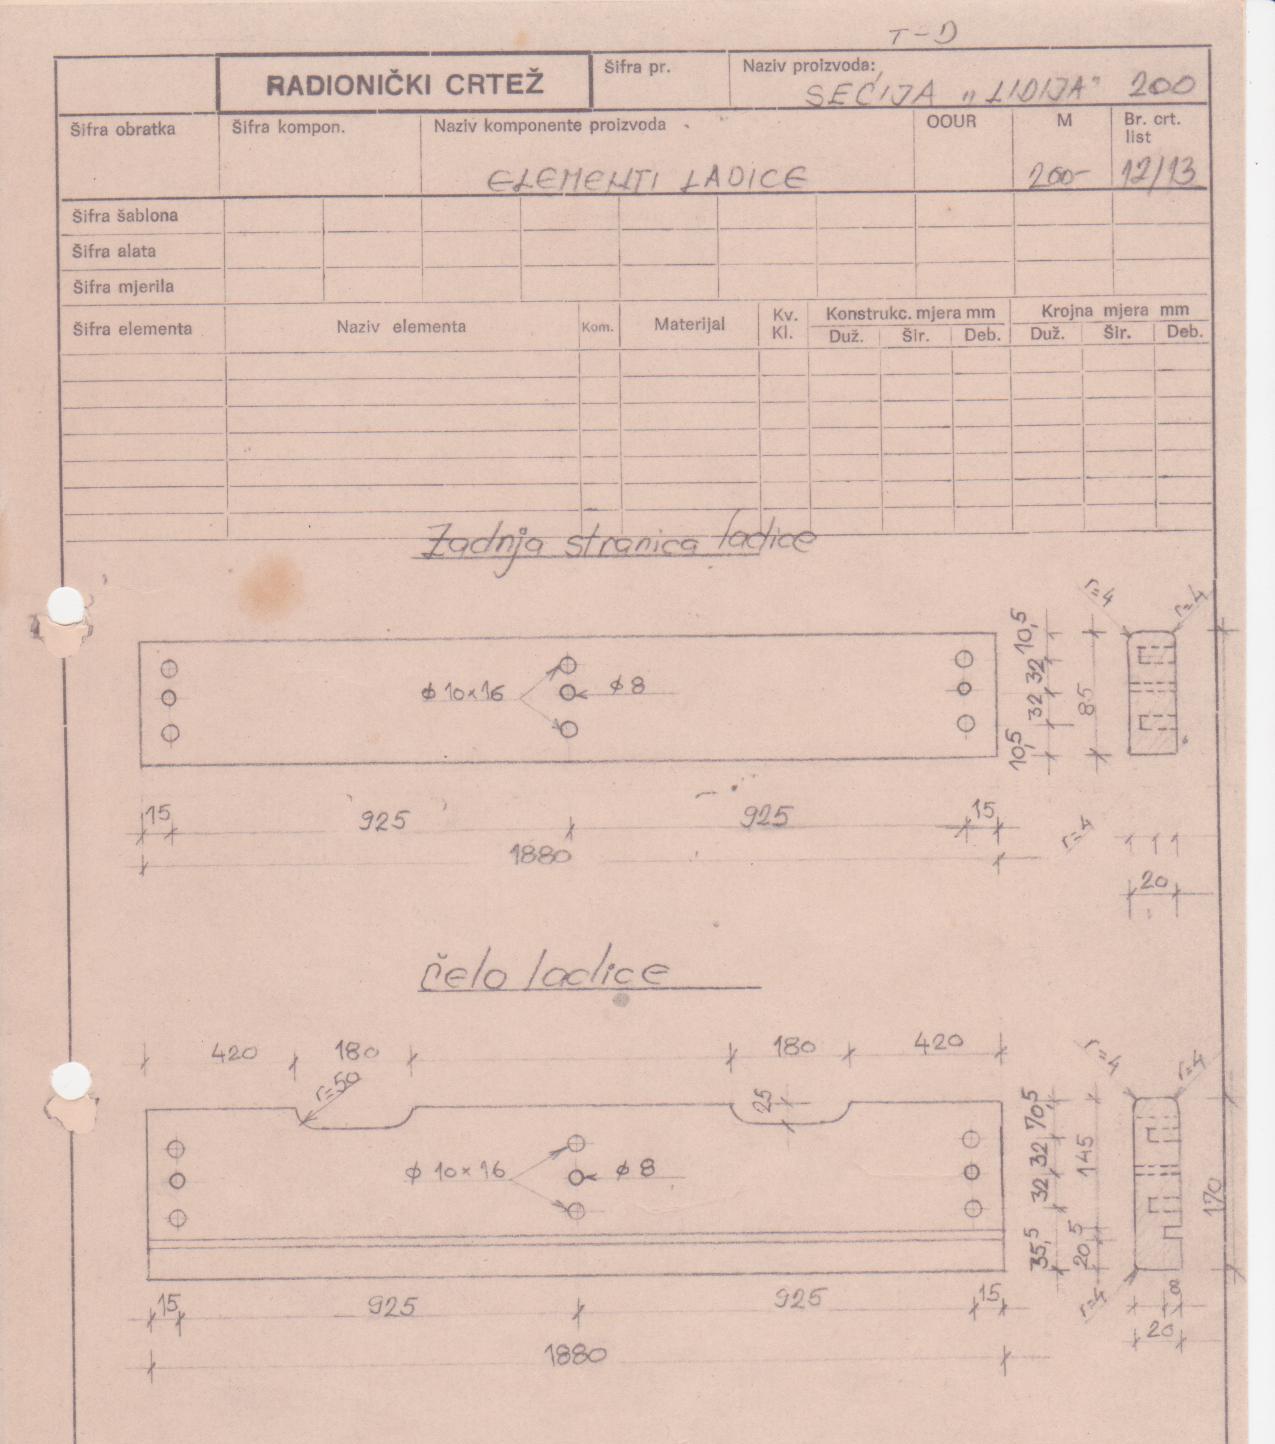 T-D
RADIONIČKI CRTEŽ Šifra pr. Naziv proizvoda:
SEĆIJA „LIDIJA" 200
Šifra obratka Šifra kompon. Naziv komponente proizvoda OOUR M Br. crt. list
ELEMENTI LADICE 200- 12/13
Šifra šablona
Šifra alata
Šifra mjerila
Šifra elementa Naziv elementa Kom. Materijal Kv. Kl. Konstrukc. mjera mm Krojna mjera mm
Duž. Šir. Deb. Duž. Šir. Deb.
Zadnja stranica ladice
r=4 r=4
ϕ 10×16 ϕ 8
10,5 32 32 10,5 85
15 925 925 15
1880
r=4
20
čelo ladice
420 180 180 420
r=50 25
r=4 r=4
ϕ 10×16 ϕ 8
70,5 32 32 35,5
145 5 20
170
r=4
8
20
15 925 925 15
1880